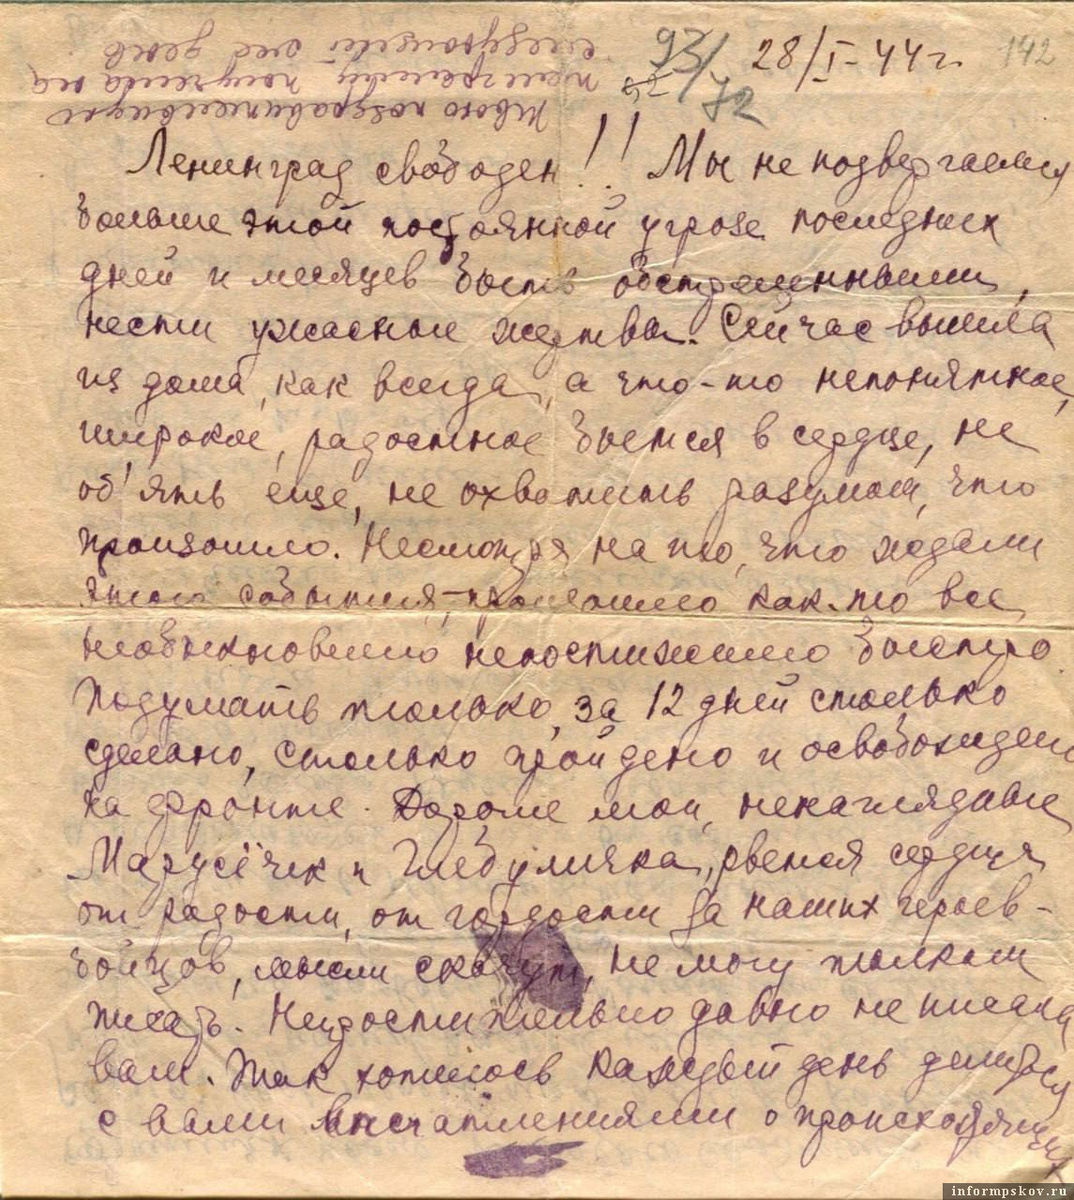 93/72
28/I-44 г.
142
Твою поздравительную
телеграмму получила на
следующий же день
Ленинград свободен!! Мы не подвергаемся
больше этой постоянной угрозе последних
дней и месяцев быть обстрелянными,
нести ужасные жертвы. Сейчас вышла
из дома, как всегда, а что-то непонятное,
широкое, радостное бьется в сердце, не
об'ять еще, не охватить разумом, что
произошло. Несмотря на то, что ждали
этого события, - произошло как-то все
необыкновенно непостижимо быстро
Подумать только, за 12 дней столько
сделано, столько пройдено и освобождено
на фронте. Дорогие мои, ненаглядные
Марусёчек и Глебушка, рвется сердце
от радости, от гордости за наших героев-
бойцов, мысли скачут, не могу толком
писать. Непростительно давно не писала
вам. Так хотелось каждый день делиться
с вами впечатлениями о происходящих
informpskov.ru